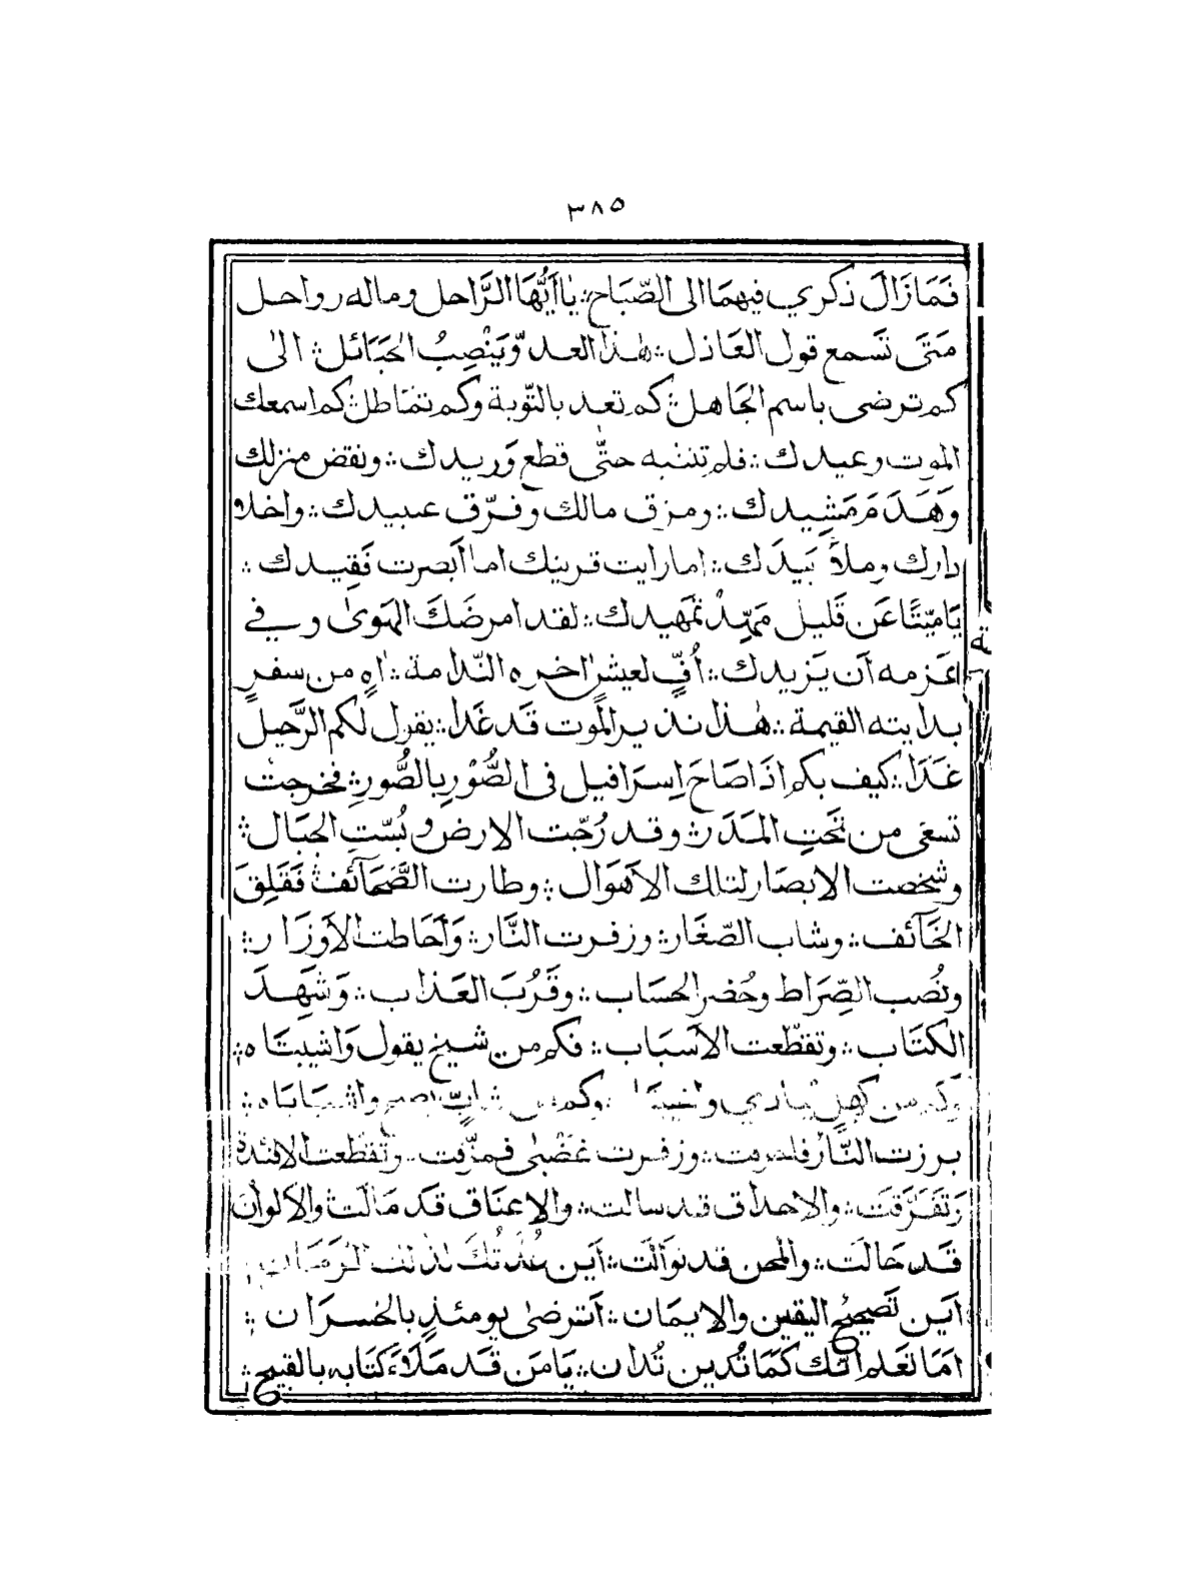 ٣٨٥
فَمَازَالَ ذكري فيهمَا الى الصّبَاح ؞ يٰا اَيُّهَا الرَّاحل وماله رواحل
مَتىٰ تَسمع قول العَاذل ؞ هٰذا العدوّ وَيَنْصِبُ الحَبَائل ؞ الىٰ
كم ترضى باسم الجَاهل ؞ كم تعد بالتّوبة وكم تمَاطل ؞ كم اسمعك
الموت وعيدك ؞ فلم تنتبه حتّٰى قطع وَريدك ؞ ونقض منزلك
وَهَدَمَ مَشِيدك ؞ ومزق مالك وفرّق عبيدك ؞ واخلا
دارك وملأ بَيدَك ؞ اما رايت قرينك اما اَبصرت فَقِيدك ؞
يَا مَيّتًا عَن قَليل مَهِّدْ تمَهيدك ؞ لقد امرضَكَ الهَوىٰ وفي
عَزمه اَن يَزيدك ؞ اُفٍّ لعيشٍ اٰخره النّدامة ؞ اٰهٍ من سفرٍ
بدايته القيمة ؞ هٰذا نذير الموت قَد غَدا ؞ يقول لكم الرَّحيل
غَدَا ؞ كيف بكم اذَا صَاحَ اِسرَافيل في الصُّوْرِ بالصُّورِ ؞ فخرجت
تسعَى من تَحتِ المَدَر ؞ وقد رُجّت الارض وبُسّتِ الجبَال ؞
وشخصت الابصَار لتلك الاَهوَال ؞ وطارت الصَّحَآئف ؞ فَقَلِقَ
الخَآئف ؞ وشاب الصّغَار ؞ وزفرت النَّار ؞ وَاَحَاطت الاَوزَار ؞
ونُصب الصِّرَاط وحُضر الحسَاب ؞ وقَرُبَ العَذاب ؞ وَشَهِدَ
الكتَاب ؞ وتقطّعت الاَسبَاب ؞ فكم من شيخ يقول وَاشيبتَاه ؞
وكم من كهل ينادي واخيبتا وكم من شابّ يصيح واشبَابَاه ؞
برزت النَّار فاحرقت ؞ وزفرت غَضْبٰى فمزّقت ؞ وتَقطّعت الافئدة
وَتَفَرَّقت ؞ والاحداق قد سالت ؞ والاعنَاق قَد مَالت ؞ والالوان
قَد حَالت ؞ والمحن قد توَالت ؞ اَين عُدّتُكَ لذٰلك الزمَان ؞
اَين تَصحيحُ اليقين والايمَان ؞ اَترضىٰ يومئذٍ بالخسرَان ؞
امَا تعَلم انّك كمَا تُدين تُدان ؞ يَا مَن قَد مَلَاءَ كتَابه بالقبيح ؞